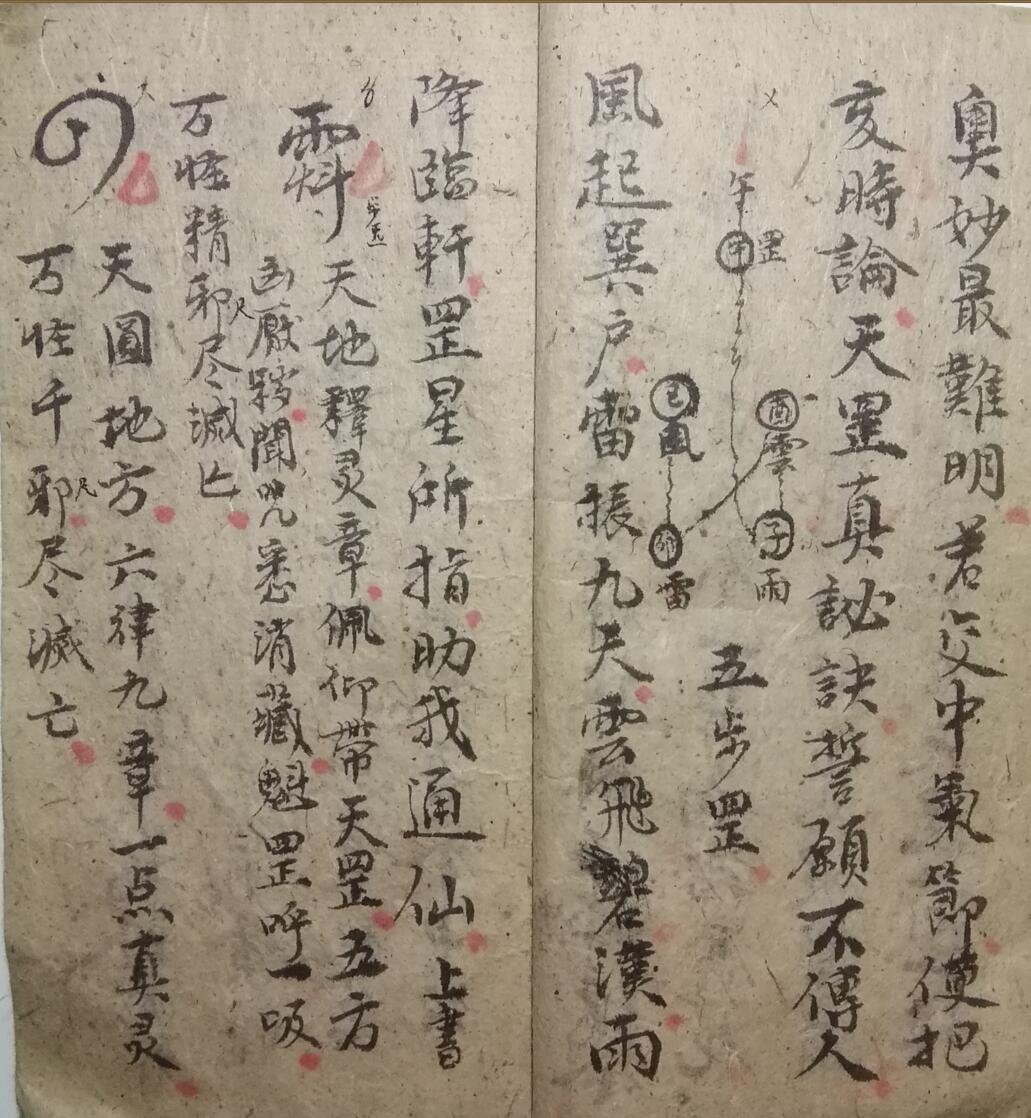 奥妙最難明若交中氣節便把
亥時論天罡真訣誓願不傳人
午
罡
酉雲
子雨
巳風
卯雷
五步罡
風起巽户雷振九天雲飛碧漢雨
降臨軒罡星所指助我通仙上書
天地釋灵章佩仰帶天罡五方
凶厭聞咒悉消藏魁罡呼一吸
万怪精邪尽滅亡
天圓地方六律九章一点真灵
万怪千邪尽滅亡